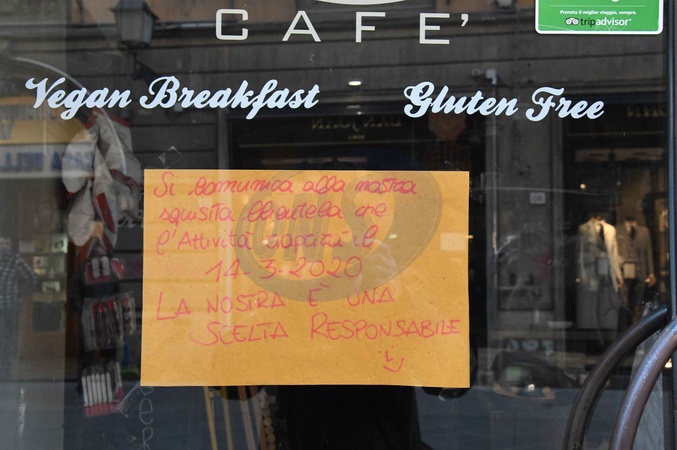 CAFE'
Prenota il miglior viaggio, sempre.
tripadvisor
Vegan Breakfast Gluten Free
Si comunica alla nostra
squisita clientela che
l'Attività riaprirà il
14-3-2020
LA NOSTRA È UNA
SCELTA RESPONSABILE